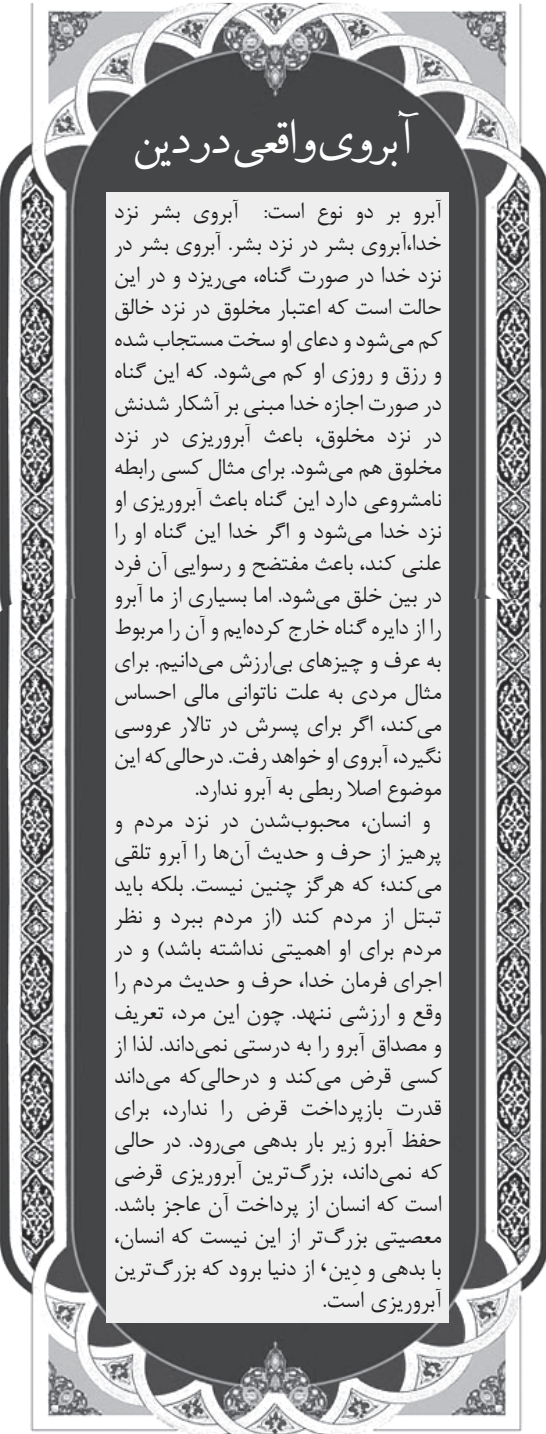 آبروی واقعی در دین
آبرو بر دو نوع است: آبروی بشر نزد
خدا،آبروی بشر در نزد بشر. آبروی بشر در
نزد خدا در صورت گناه، می‌ریزد و در این
حالت است که اعتبار مخلوق در نزد خالق
کم می‌شود و دعای او سخت مستجاب شده
و رزق و روزی او کم می‌شود. که این گناه
در صورت اجازه خدا مبنی بر آشکار شدنش
در نزد مخلوق، باعث آبروریزی در نزد
مخلوق هم می‌شود. برای مثال کسی رابطه
نامشروعی دارد این گناه باعث آبروریزی او
نزد خدا می‌شود و اگر خدا این گناه او را
علنی کند، باعث مفتضح و رسوایی آن فرد
در بین خلق می‌شود. اما بسیاری از ما آبرو
را از دایره گناه خارج کرده‌ایم و آن را مربوط
به عرف و چیزهای بی‌ارزش می‌دانیم. برای
مثال مردی به علت ناتوانی مالی احساس
می‌کند، اگر برای پسرش در تالار عروسی
نگیرد، آبروی او خواهد رفت. درحالی‌که این
موضوع اصلا ربطی به آبرو ندارد.
و انسان، محبوب‌شدن در نزد مردم و
پرهیز از حرف و حدیث آن‌ها را آبرو تلقی
می‌کند؛ که هرگز چنین نیست. بلکه باید
تبتل از مردم کند (از مردم ببرد و نظر
مردم برای او اهمیتی نداشته باشد) و در
اجرای فرمان خدا، حرف و حدیث مردم را
وقع و ارزشی ننهد. چون این مرد، تعریف
و مصداق آبرو را به درستی نمی‌داند. لذا از
کسی قرض می‌کند و درحالی‌که می‌داند
قدرت بازپرداخت قرض را ندارد، برای
حفظ آبرو زیر بار بدهی می‌رود. در حالی
که نمی‌داند، بزرگ‌ترین آبروریزی قرضی
است که انسان از پرداخت آن عاجز باشد.
معصیتی بزرگ‌تر از این نیست که انسان،
با بدهی و دِین، از دنیا برود که بزرگ‌ترین
آبروریزی است.